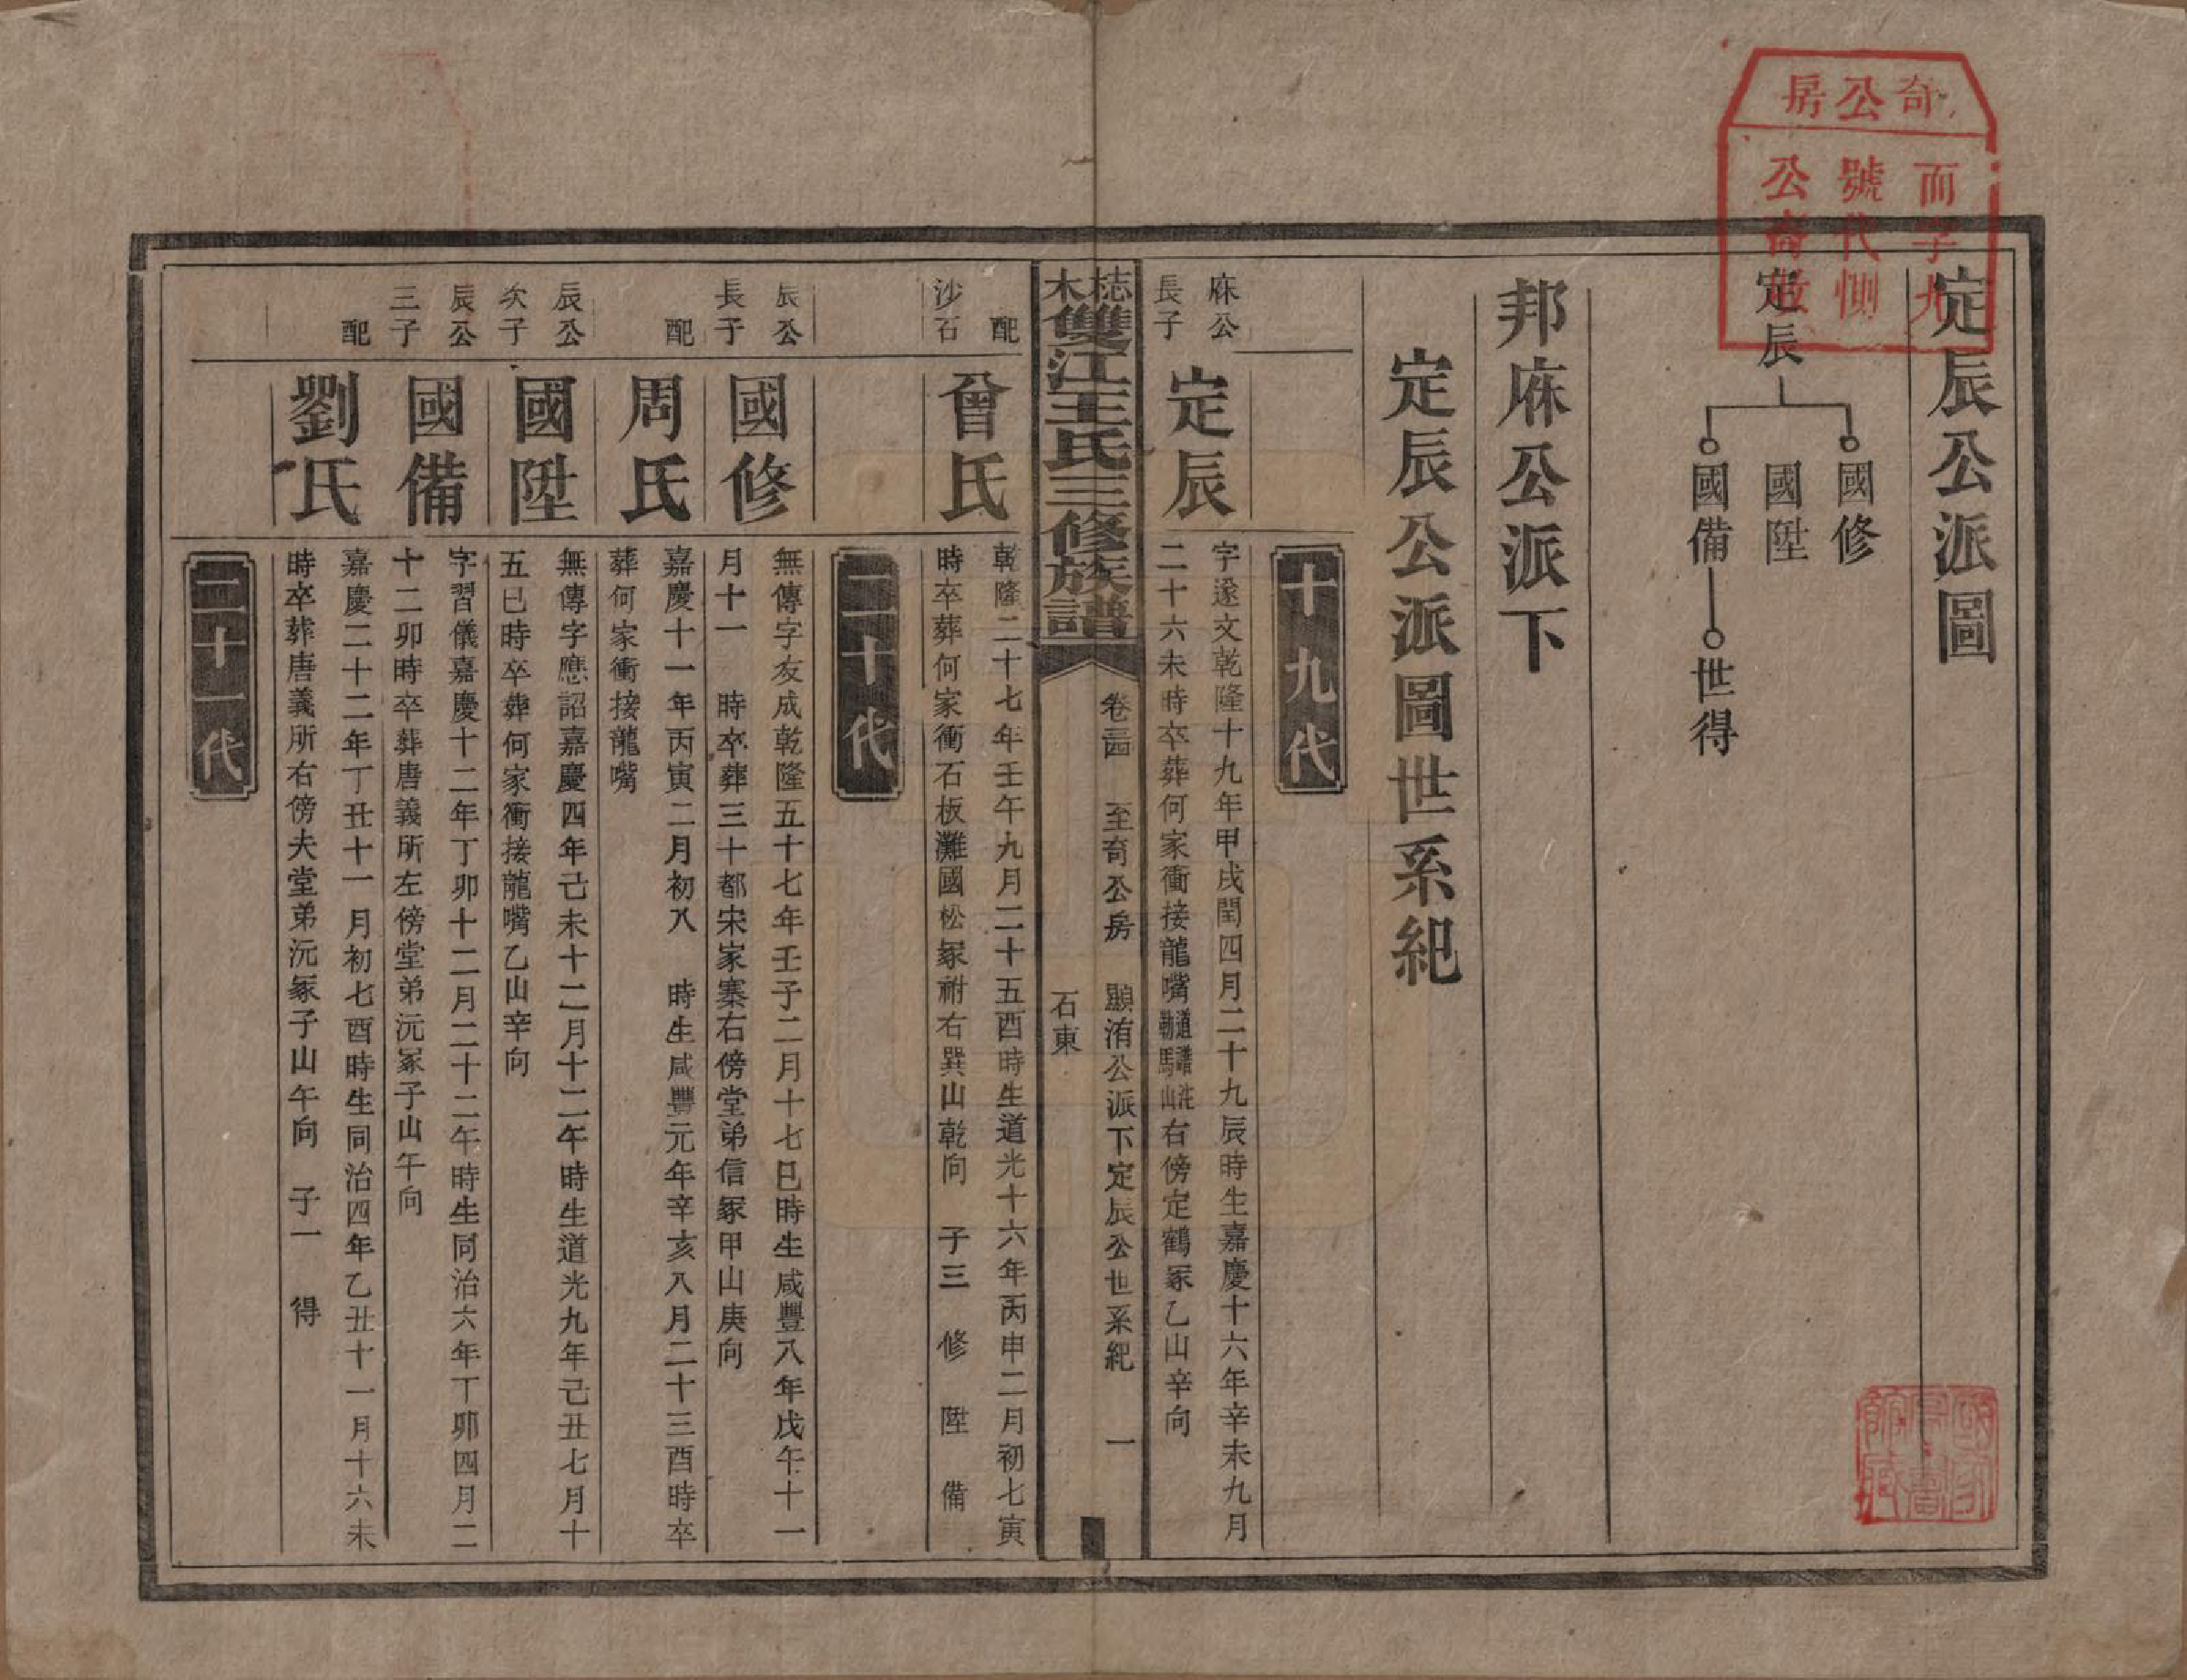 奇公房
而字九
號代惻
公裔
定辰公派圖
定辰
國修
國陞
國備
世得
邦庥公派下
定辰公派圖世系紀
十九代
庥公長子
定辰
字遂文乾隆十九年甲戌閏四月二十九辰時生嘉慶十六年辛未九月
二十六未時卒葬何家衝接龍嘴道譜注勒馬山右傍定鶴冢乙山辛向
梽木雙江王氏三修族譜
卷四 至奇公房 顯洧公派下定辰公世系紀 一
石東
配沙石
曾氏
乾隆二十七年壬午九月二十五酉時生道光十六年丙申二月初七寅
時卒葬何家衝石板灘國松冢祔右巽山乾向 子三 修 陞 備
二十代
辰公長子
國修
無傳字友成乾隆五十七年壬子二月十七巳時生咸豐八年戊午十一
月十一 時卒葬三十都宋家寨右傍堂弟信冢甲山庚向
配
周氏
嘉慶十一年丙寅二月初八 時生咸豐元年辛亥八月二十三酉時卒
葬何家衝接龍嘴
辰公次子
國陞
無傳字應詔嘉慶四年己未十二月十二午時生道光九年己丑七月十
五巳時卒葬何家衝接龍嘴乙山辛向
辰公三子
國備
字習儀嘉慶十二年丁卯十二月二十二午時生同治六年丁卯四月二
十二卯時卒葬唐義所左傍堂弟沅冢子山午向
配
劉氏
嘉慶二十二年丁丑十一月初七酉時生同治四年乙丑十一月十六未
時卒葬唐義所右傍夫堂弟沅冢子山午向 子一 得
二十一代